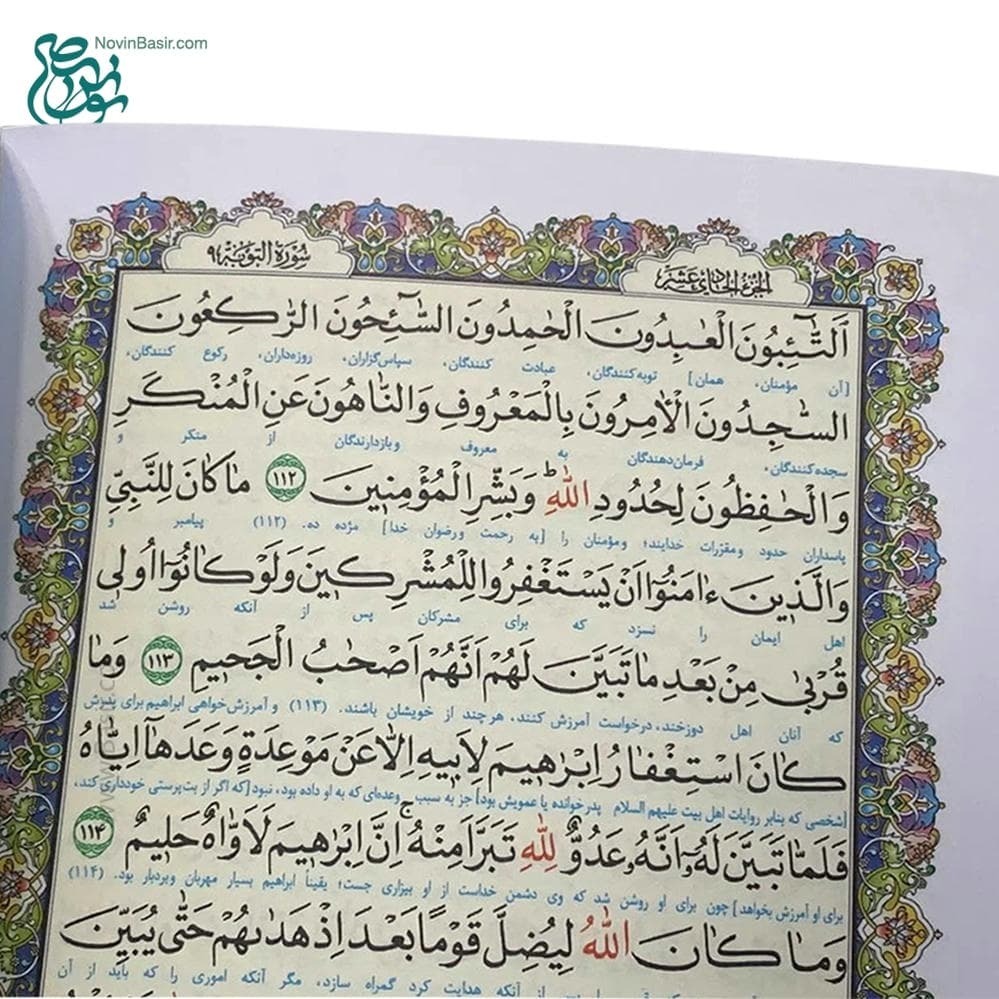 NovinBasir.com
سُورَةُ التَّوْبَة ٩
الجُزءُ الحَادِي عَشَر
اَلتَّٰٓئِبُونَ الْعٰبِدُونَ الْحٰمِدُونَ السّٰٓئِحُونَ الرّٰكِعُونَ
[آن مؤمنان، همان] توبه‌کنندگان، عبادت کنندگان، سپاس‌گزاران، روزه‌داران، رکوع کنندگان،
السّٰجِدُونَ الْاٰمِرُونَ بِالْمَعْرُوفِ وَالنّاهُونَ عَنِ الْمُنْكَرِ
سجده‌کنندگان، فرمان‌دهندگان به معروف و بازدارندگان از منکر و
وَالْحٰفِظُونَ لِحُدُودِ اللّٰهِ ۗ وَبَشِّرِ الْمُؤْمِنِينَ ١١٢ مَا كَانَ لِلنَّبِيِّ
پاسداران حدود و مقرّرات خدایند؛ و مؤمنان را [به رحمت و رضوان خدا] مژده ده. (١١٢) پیامبر و
وَالَّذِينَ ءَامَنُوٓا اَنْ يَسْتَغْفِرُوا لِلْمُشْرِكِينَ وَلَوْ كَانُوٓا اُولِي
اهل ایمان را نسزد که برای مشرکان پس از آنکه روشن شد
قُرْبٰى مِنْ بَعْدِ مَا تَبَيَّنَ لَهُمْ اَنَّهُمْ اَصْحٰبُ الْجَحِيمِ ١١٣ وَمَا
که آنان اهل دوزخند، درخواست آمرزش کنند، هر چند از خویشان باشند. (١١٣) و آمرزش‌خواهی ابراهیم برای پدرش
كَانَ اسْتِغْفَارُ اِبْرٰهِيمَ لِاَبِيهِ اِلّا عَنْ مَوْعِدَةٍ وَعَدَهَآ اِيّاهُ
[شخصی که بنابر روایات اهل بیت علیهم السلام پدرخوانده یا عمویش بود] جز به سبب وعده‌ای که به او داده بود، نبود [که اگر از بت‌پرستی خودداری کند،
فَلَمّا تَبَيَّنَ لَهُٓ اَنَّهُ عَدُوٌّ لِلّٰهِ تَبَرَّاَ مِنْهُ ۚ اِنَّ اِبْرٰهِيمَ لَاَوّٰهٌ حَلِيمٌ ١١٤
برای او آمرزش بخواهد] چون برای او روشن شد که وی دشمن خداست از او بیزاری جست؛ یقیناً ابراهیم بسیار مهربان و بردبار بود. (١١٤)
وَمَا كَانَ اللّٰهُ لِيُضِلَّ قَوْمًا بَعْدَ اِذْ هَدٰىهُمْ حَتّٰى يُبَيِّنَ
از آنکه هدایت کرد گمراه سازد، مگر آنکه اموری را که باید از آن